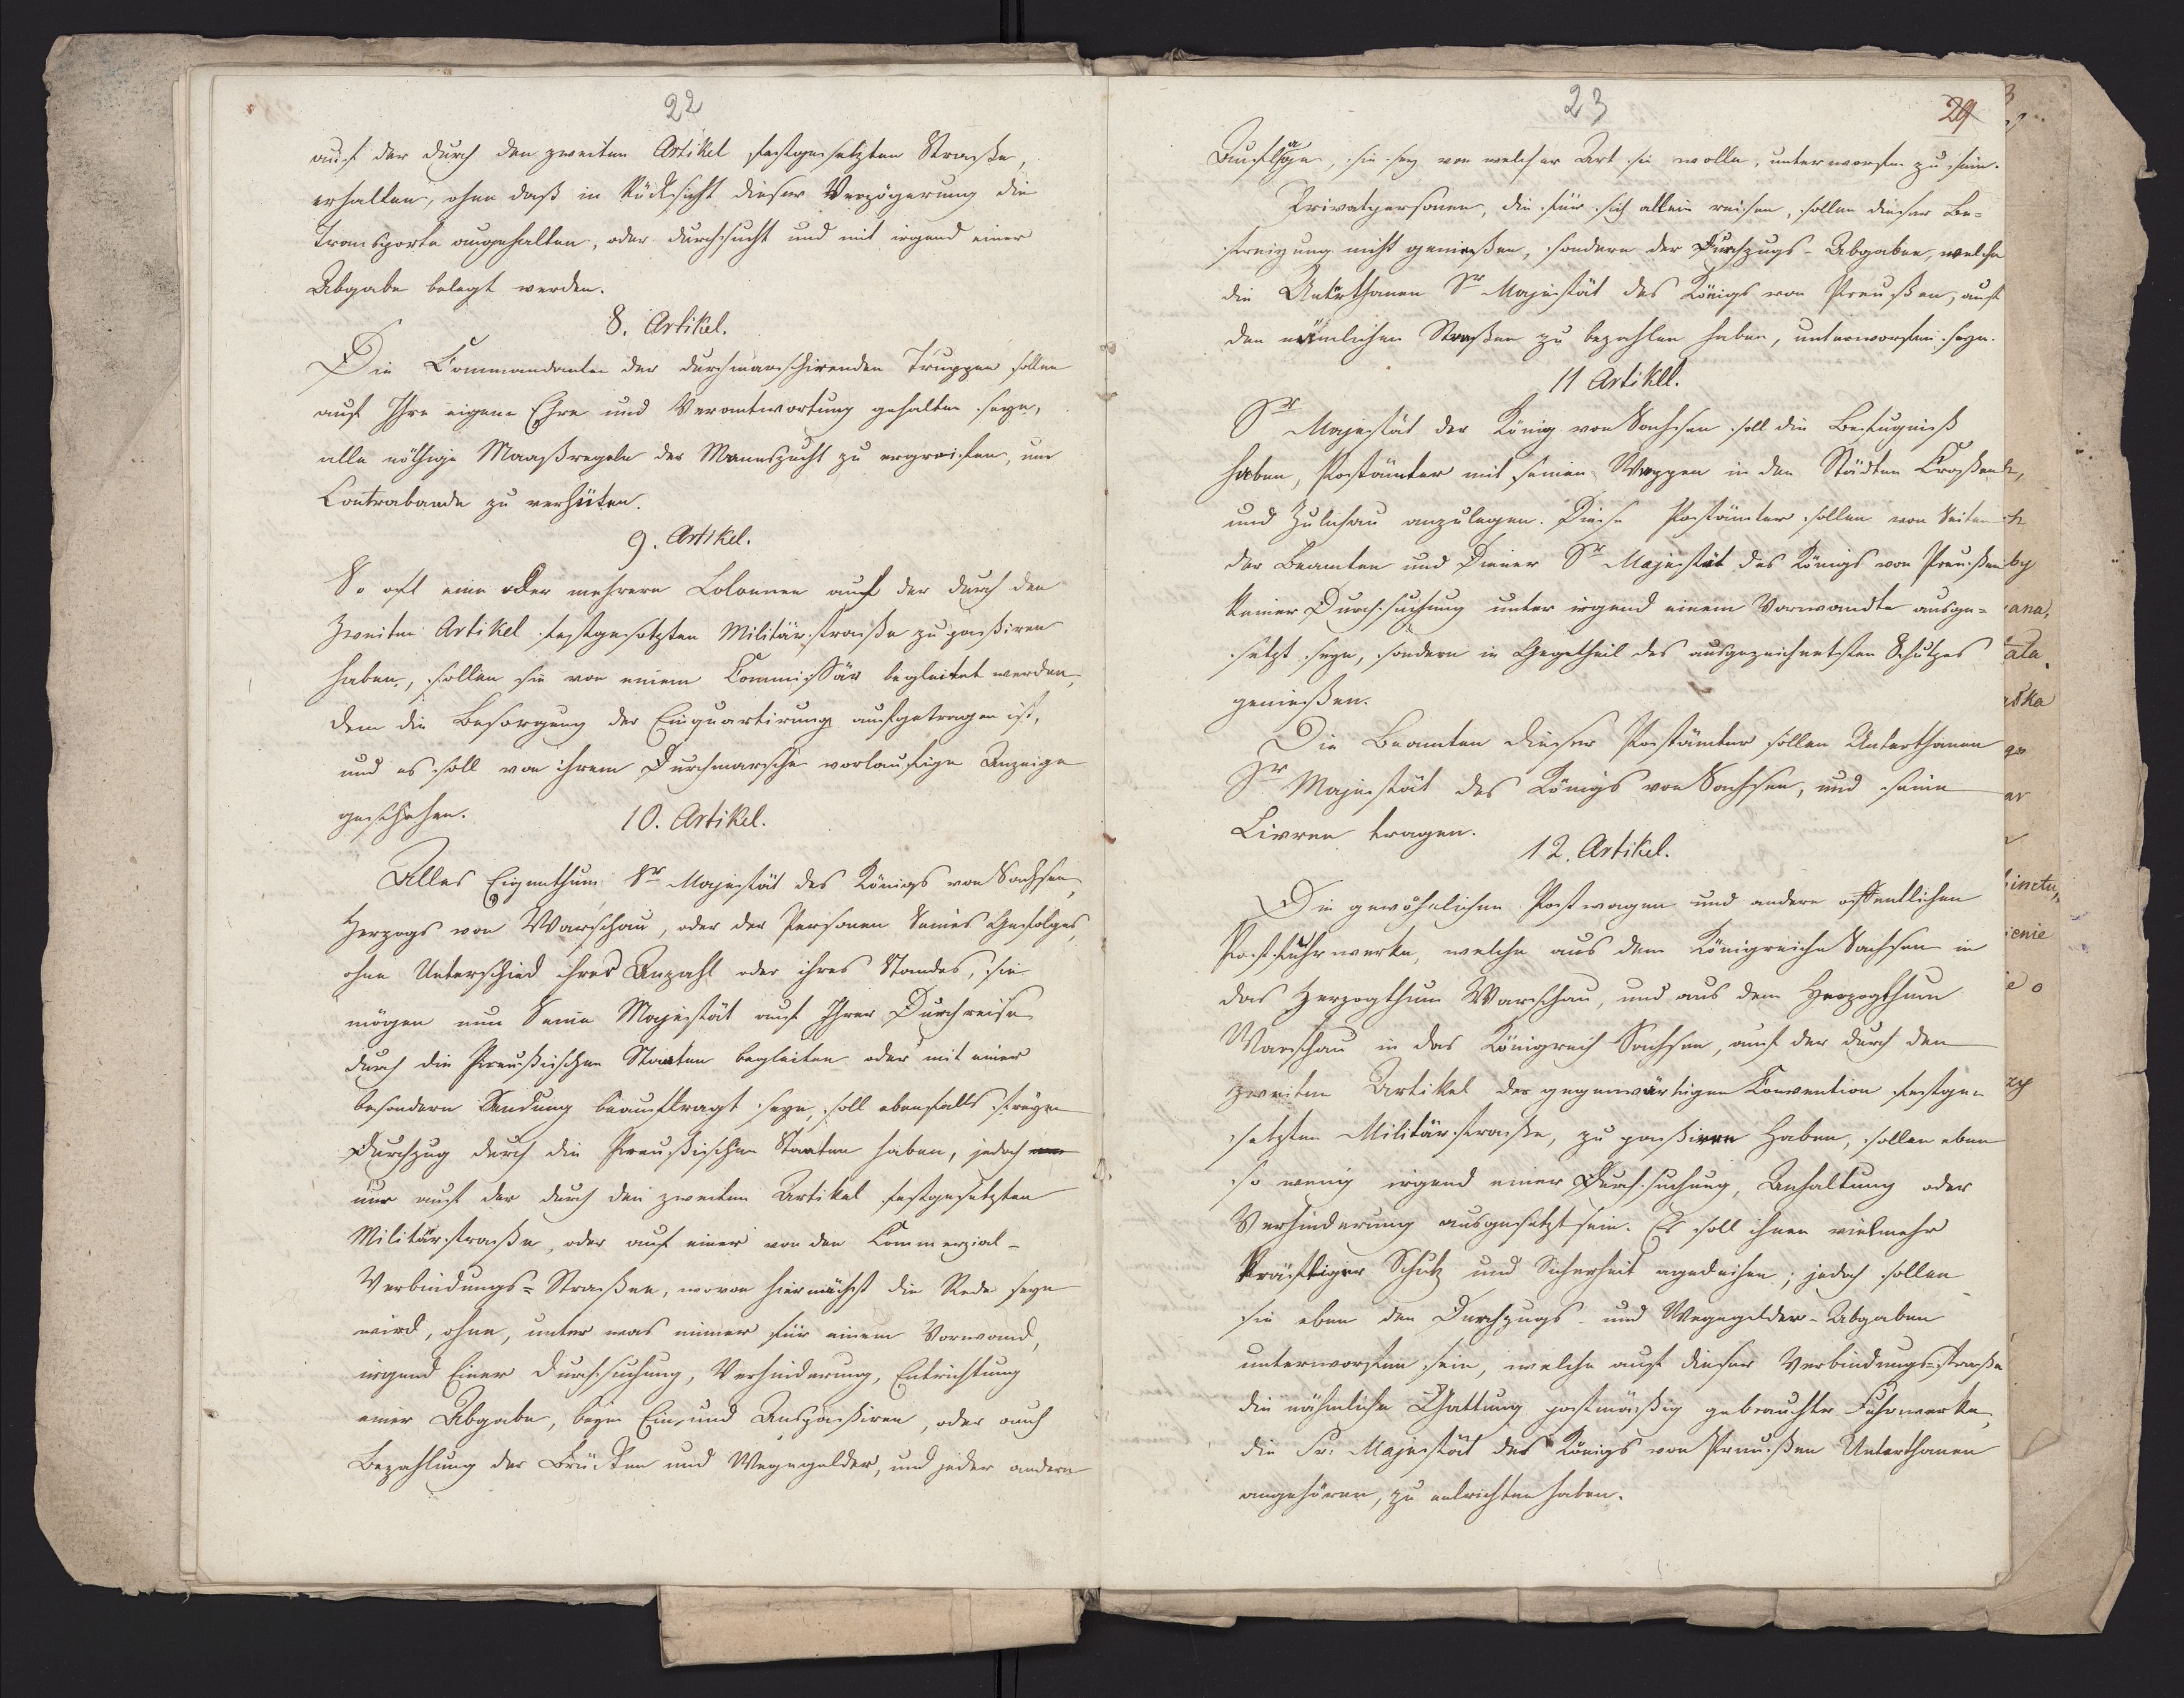 22
auf der durch den zweiten Artikel festgesetzten Straße,
erhalten, ohne daß in Rücksicht dieser Verzögerung die
Transporte angehalten, oder durchsucht und mit irgend einer
Abgabe belegt werden.
8. Artikel.
Die Commandanten der durchmarschirenden Truppen sollen
auf Ihre eigene Ehre und Verantwortung gehalten seyn,
alle nöthige Maaßregeln der Mannszucht zu ergreifen, um
Contrabande zu verhüten.
9. Artikel.
So oft eine oder mehrere Colonnen auf der durch den
Zweiten Artikel festgesetzten Militärstraße zu paßiren
haben, sollen sie von einem Commissär begleitet werden,
dem die Besorgung der Einquartirung aufgetragen ist,
und es soll von ihrem Durchmarsche vorlaufige Anzeige
geschehen.
10. Artikel.
Alles Eigenthum Sr Majestät des Königs von Sachsen,
Herzogs von Warschau, oder der Personen Seines Gefolges,
ohne Unterschied ihrer Anzahl oder ihres Standes, sie
mögen nun Seine Majestät auf Ihrer Durchreise
durch die Preußischen Staaten begleiten oder mit einer
besondern Sendung beauftragt seyn, soll ebenfalls freyen
Durchzug durch die Preußischen Staaten haben, jedoch
nur auf der durch den zweiten Artikel festgesetzten
Militärstraße, oder auf einer von den Commerzial-
Verbindungs-Straßen, wovon hiernächst die Rede seyn
wird, ohne, unter was immer für einem Vorwand,
irgend Einer Durchsuchung, Verhinderung, Entrichtung
einer Abgabe, beym Ein- und Auspaßiren, oder auch
Bezahlung der Brücken und Wegegelder, und jeder andern
23
29
Auflage, sie sey von welcher Art sie wolle, unterworfen zu sein.
Privatpersonen, die für sich allein reisen, sollen dieser Be-
freiyung nicht genießen, sondern der Durchzugs-Abgaben, welche
die Unterthanen Sr Majestät des Königs von Preußen, auf
den nämlichen Straßen zu bezahlen haben, unterworfen seyn.
11 Artikel.
Sr Majestät der König von Sachsen soll die Befugniß
haben, Postämter mit seinem Wappen in den Städten Croßen
und Zulichau anzulegen. Diese Postämter sollen von Seiten
der Beamten und Diener Sr Majestät des Königs von Preußen
keiner Durchsuchung unter irgend einem Vorwandte ausge-
setzt seyn, sondern in Gegetheil des ausgezeichnetsten Schutzes
genießen.
Die Beamten dieser Postämter sollen Unterthanen
Sr Majestät des Königs von Sachsen, und seine
Livree tragen.
12. Artikel.
Die gewöhnlichen Postwagen und andere öffentlichen
Postfuhrwerke, welche aus dem Königreiche Sachsen in
das Herzogthum Warschau, und aus dem Herzogthum
Warschau in das Königreich Sachsen, auf der durch den
zweiten Artikel der gegenwärtigen Konvention festge-
setzten Militärstraße, zu paßiren haben, sollen eben
so wenig irgend einer Durchsuchung, Anhaltung oder
Verhinderung ausgesetzt sein. Es soll ihnen vielmehr
kräftiger Schutz und Sicherheit agedeihen; jedoch sollen
sie eben den Durchzugs- und Wegegelder-Abgaben
unterworfen sein, welche auf dieser Verbindungs-straße
die nähmliche Gattung postmäßig gebrauchter Fuhrwerke,
die Sr. Majestät des Königs von Preußen Unterthanen
angehören, zu entrichten haben.